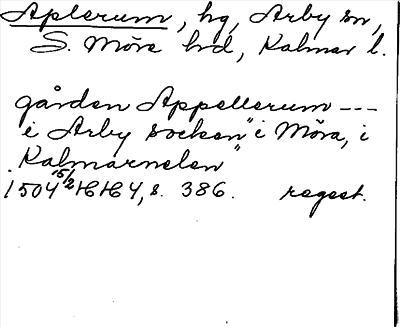 Aplerum, hg, Arby sn,
S. Möre hd, Kalmar l.
gården Appellerum ---
i Arby socken "i Möre, i
Kalmarnelen"
1504 15/2 HH 4, s. 386. regest.